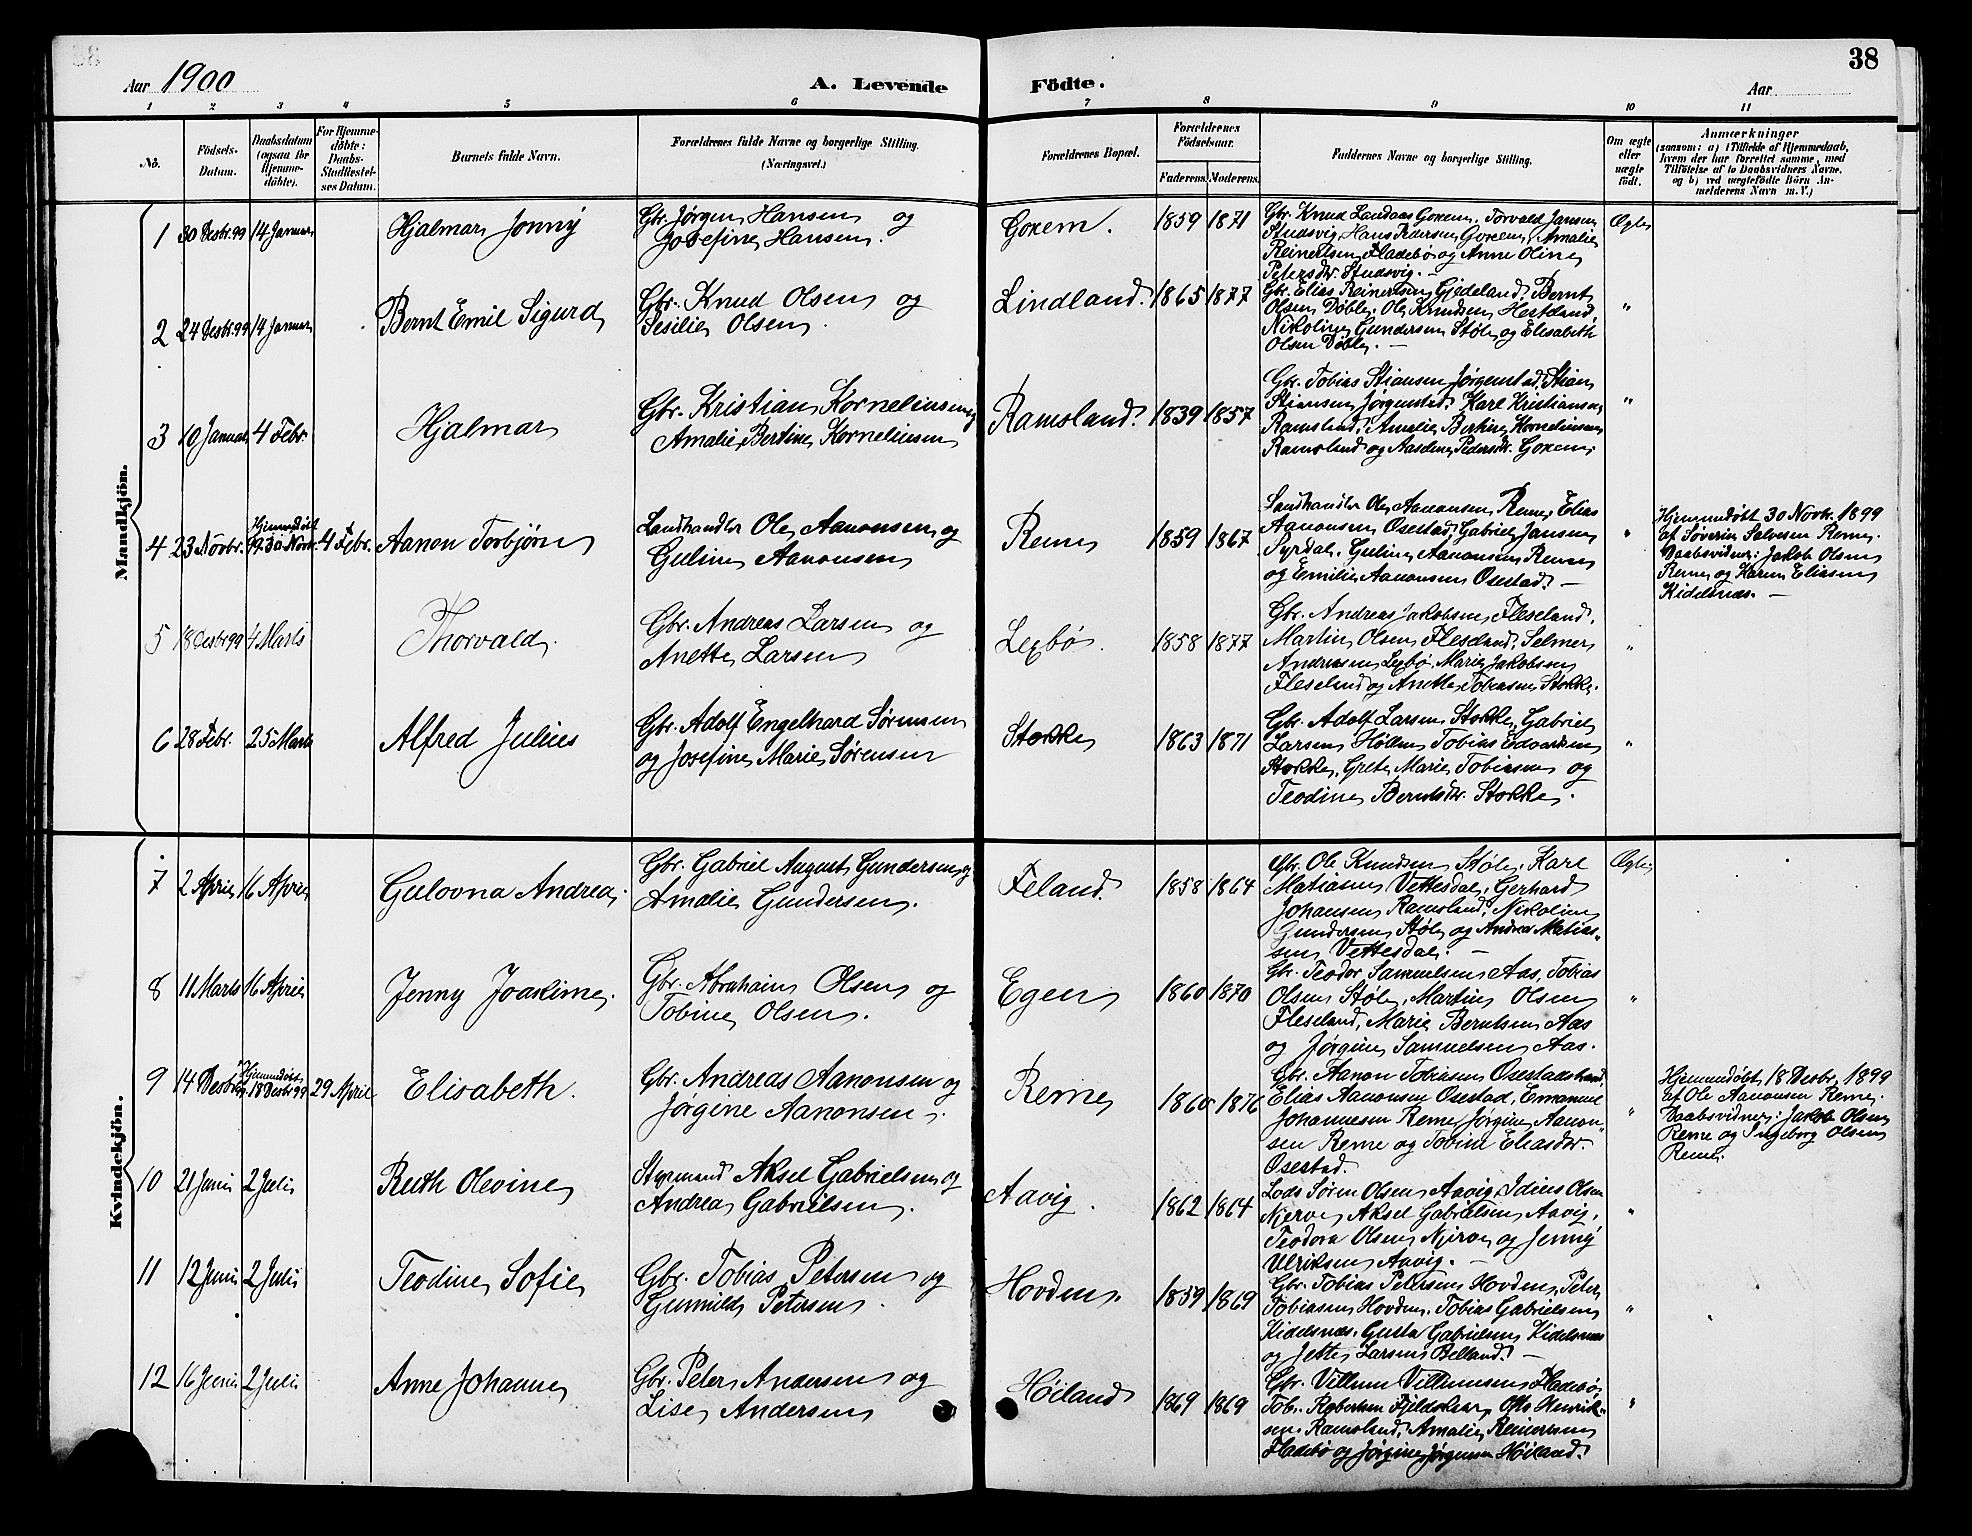 38
Aar 1900
A. Levende
Födte.
Aar
1 2 3 4 5 6 7 8 9 10 11
No.
Födsels-Datum.
Daabsdatum (ogsaa for Hjemmedöbte).
For Hjemmedöbte: Daabs-Stadfæstelses Datum.
Barnets fulde Navn.
Forældrenes fulde Navne og borgerlige Stilling. (Næringsvei.)
Forældrenes Bopæl.
Forældrenes Födselsaar.
Faderens. Moderens.
Faddernes Navne og borgerlige Stilling.
Om ægte eller uægte födt.
Anmærkninger
(saasom: a) i Tilfælde af Hjemmedaab,
hvem der har forrettet samme, med
Tilföielse af to Daabsvidners Navne.
og b) ved uægtefödte Börn An-
melderens Navn m. V.)
Mandkjön.
1 30 Desbr. 99 14 Januar Hjalmar Jonny
Gbr. Jørgen Hansen og
Josefine Hansen.
Gorem. 1859 1871
Gbr. Knud Landaas Gorem, Torvald Jansen
Studsvig, Hans Pedersen Gorem, Amalie
Reinertsen Fladebø og Anne Oline
Petersdtr. Studsvig. —
Ægte
2 24 Desbr 99 14 Januar Bernt Emil Sigurd
Gbr. Knud Olsen og
Sesilie Olsen.
Lindland. 1865 1877
Gbr. Elias Reinertsen Gjedeland, Bernt
Olsen Døble, Ole Knudsen Hestland,
Nikoline Gundersen Støle og Elisabeth
Olsen Døble. —
"
3 10 Januar 4 Febr. Hjalmar
Gbr. Kristian Korneliusen og
Amalie Bertine Korneliusen
Ramsland. 1839 1857
Gbr. Tobias Stiansen Jørgenstad, Stian
Stiansen Jørgenstad, Karl Kristiansen
Ramsland, Amalie Bertine Korneliusen
Ramsland og Aasdine Pedersdtr. Gorem.
"
4 23 Novbr. Hjemmedøbt 99 30 Novb. 4 Febr. Aanon Torbjørn
Landhandler Ole Aanonsen og
Guline Aanonsen
Reme 1859 1867
Landhandler Ole Aanonsen Reme, Elias
Aanonsen Osestad, Gabriel Jansen
Syrdal, Guline Aanonsen Reme
og Emilie Aanonsen Osestad. —
"
Hjemmedøbt 30 Novbr. 1899
af Søverin Salvesen Reme.
Daabsvidner: Jakob Olsen
Reme og Karen Eliasen
Kidelsnæs. —
5 18 Desbr 99 4 Marts Thorvald.
Gbr. Andreas Larsen og
Anette Larsen
Lexbø. 1858 1877
Gbr. Andreas Jakobsen Fleseland,
Martin Olsen Fleseland, Selmer
Andreasen Lexbø, Marie Jakobsen
Fleseland og Anette Tobiasen Stokke.
"
6 28 Febr. 25 Marts Alfred Julius
Gbr. Adolf Engelhard Sørensen
og Josefine Marie Sørensen
Stokke 1863 1871
Gbr. Adolf Larsen Stokke, Gabriel
Larsen Hollen, Tobias Edvardsen
Stokke, Grete Marie Tobiasen og
Teodine Berntsdtr. Stokke.
"
Kvindekjön.
7 2 April 16 April Gulovna Andrea.
Gbr. Gabriel August Gundersen og
Amalie Gundersen.
Feland. 1858 1864
Gbr. Ole Knudsen Støle, Karl
Matiasen Vettesdal, Gerhard
Johansen Ramsland, Nikoline
Gundersen Støle og Andrea Matias-
sen Vettesdal. —
Ægte
8 11 Marts 16 April Jenny Joakime.
Gbr. Abraham Olsen og
Tobine Olsen.
Egen 1860 1870
Gbr. Teodor Samuelsen Aas, Tobias
Olsen Støle, Martin Olsen
Fleseland, Marie Berntsen Aas
og Jørgine Samuelsen Aas.
"
9 14 Desbr. Hjemmedøbt 18 Desbr 99 29 April Elisabeth.
Gbr. Andreas Aanonsen og
Jørgine Aanonsen.
Reme 1860 1876
Gbr. Aanon Tobiasen Osestadstrand,
Elias Aanonsen Osestad, Emanuel
Johannesen Reme, Jørgine Aanon-
sen Reme og Tobine Eliasdtr.
Osestad.
"
Hjemmedøbt 18 Desbr. 1899
af Ole Aanonsen Reme.
Daabsvidner: Jakob Olsen
Reme og Ingeborg Olsen
Reme.
10 21 Juni 2 Juli Ruth Olevine
Styrmand Aksel Gabrielsen og
Andrea Gabrielsen.
Aavig. 1862 1864
Lods Søren Olsen Aavig, Idius Olsen
Njerve, Aksel Gabrielsen Aavig,
Teodora Olsen Njerve og Jenny
Ulriksen Aavig. —
"
11 12 Juni 2 Juli Teodine Sofie
Gbr. Tobias Petersen og
Gunnild Petersen.
Hovden. 1859 1869
Gbr. Tobias Petersen Hovden, Peter
Tobiasen Hovden, Tobias Gabrielsen
Kidelsnæs, Gusta Gabrielsen Kidelsnæs
og Jette Larsen Belland. —
"
12 16 Juni 2 Juli Anne Johanne
Gbr. Peter Andersen og
Lise Andersen
Høiland 1869 1869
Gbr. Villum Villumsen Fladebø,
Tob. Robertsen Fjeldskaar, Otto Henrik-
sen Ramsland, Amalie Reinertsen
Fladebø og Jørgine Jørgensen Høiland.
"